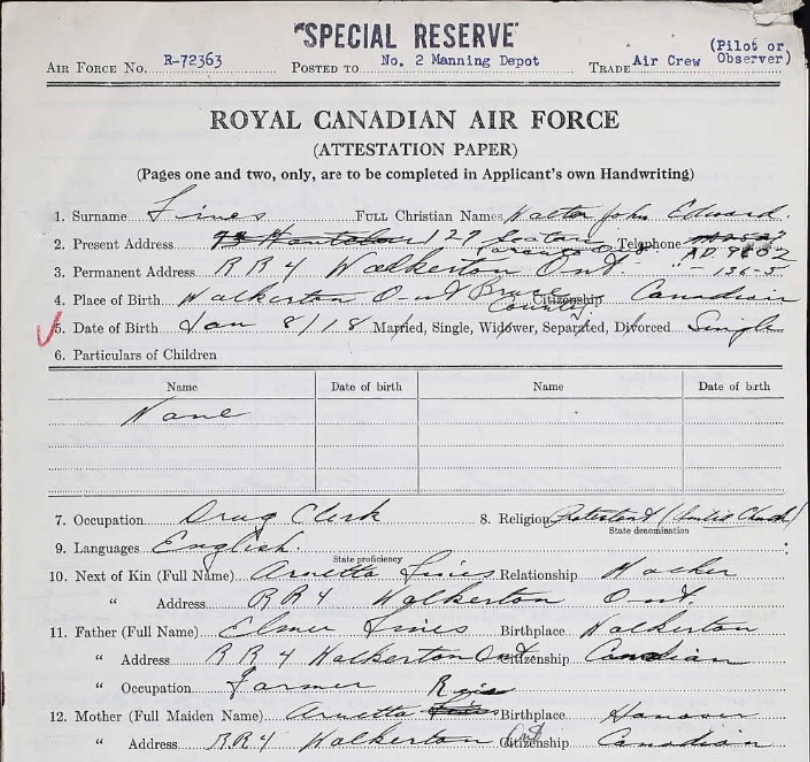 "SPECIAL RESERVE"
AIR FORCE No. R-72363 POSTED TO No. 2 Manning Depot TRADE Air Crew (Pilot or Observer)
ROYAL CANADIAN AIR FORCE
(ATTESTATION PAPER)
(Pages one and two, only, are to be completed in Applicant's own Handwriting)
1. Surname Fines FULL Christian Names Walter John Edward.
2. Present Address 127 Seaton Toronto Ont. Telephone AD. 9602
3. Permanent Address R R 4 Walkerton Ont. " - 136-5
4. Place of Birth Walkerton Ont Bruce County. Citizenship Canadian
5. Date of Birth Jan 8/18 Married, Single, Widower, Separated, Divorced Single
6. Particulars of Children
Name Date of birth Name Date of birth
None
7. Occupation Drug Clerk 8. Religion Protestant (United Church)
State denomination
9. Languages English.
State proficiency
10. Next of Kin (Full Name) Arnetta Fines Relationship Mother
" Address R R 4 Walkerton Ont.
11. Father (Full Name) Elmer Fines Birthplace Walkerton
" Address R R 4 Walkerton Ont Citizenship Canadian
" Occupation Farmer
12. Mother (Full Maiden Name) Arnetta Birthplace Hanover
" Address R.R 4 Walkerton Ont Citizenship Canadian